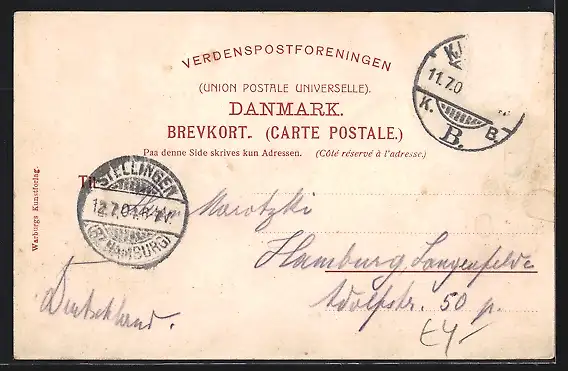 VERDENSPOSTFORENINGEN
(UNION POSTALE UNIVERSELLE).
DANMARK.
BREVKORT. (CARTE POSTALE.)
Paa denne Side skrives kun Adressen. (Côté réservé à l'adresse.)
KJ
11.7.0
K. B.
B.
Til
STELLINGEN
12.7.0
(Bz HAMBURG)
Marotzki
Hamburg Langenfelde
Adolfstr. 50 p.
Deutschland.
€4,-
Warburgs Kunstforlag.